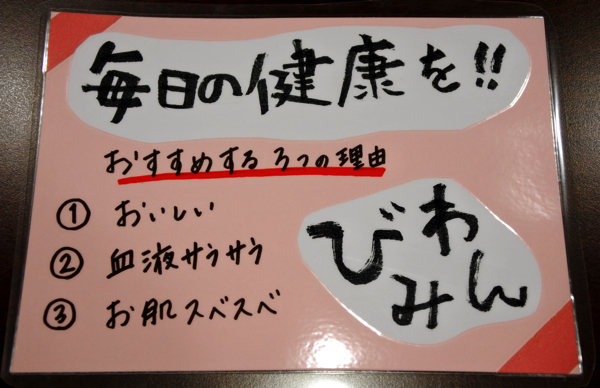 毎日の健康を!!
おすすめする3つの理由
① おいしい
② 血液サラサラ
③ お肌スベスベ
びわ
みん